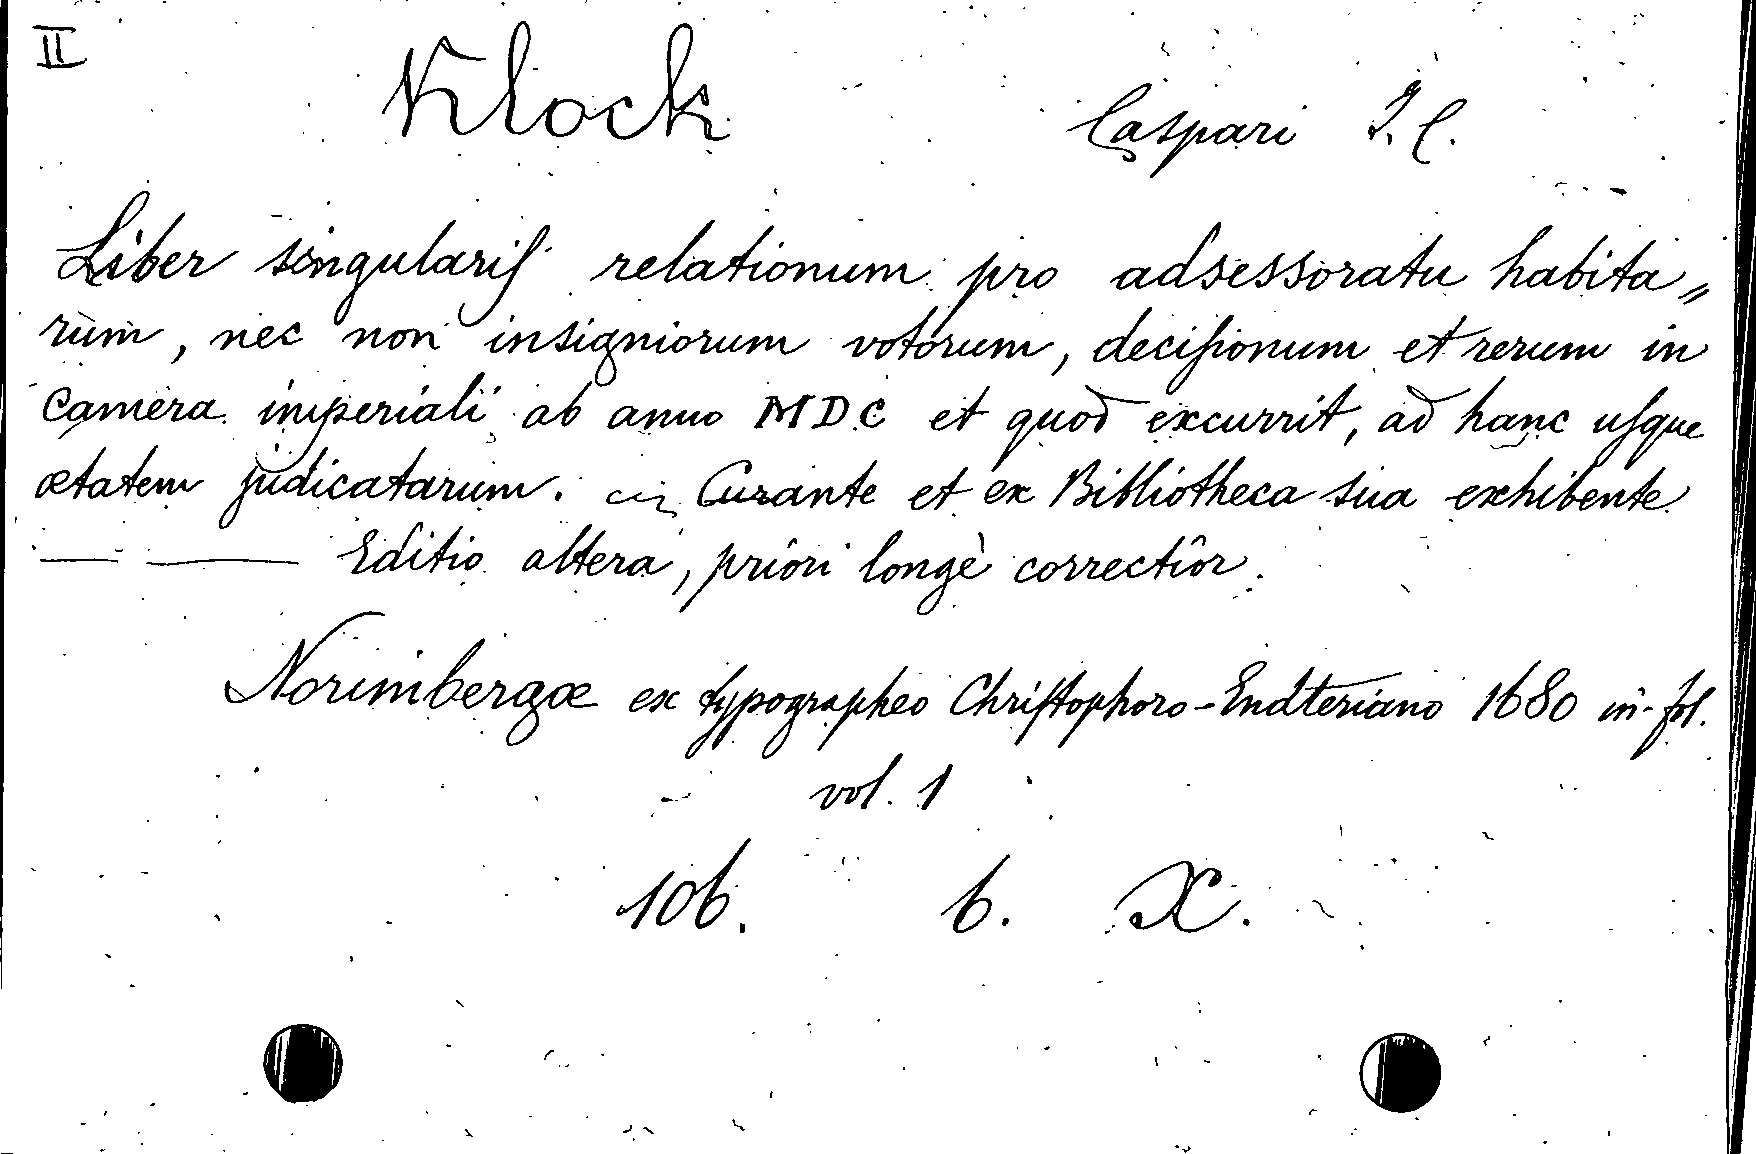 II
Klock Caspari I. C.
Liber singulariſ relationum pro adsessoratu habita„
rum, nec non insigniorum votorum, deciſionum et rerum in
camera imperiali ab anno MDC et quod excurrit, ad hanc uſque
ætatem judicatarum. Curante et ex Bibliotheca sua exhibente
— — Editio altera, priori longè correctior.
Norimbergæ ex typographeo Chriſtophoro-Endteriano 1680 in-fol.
vol. 1
106. 6. X.